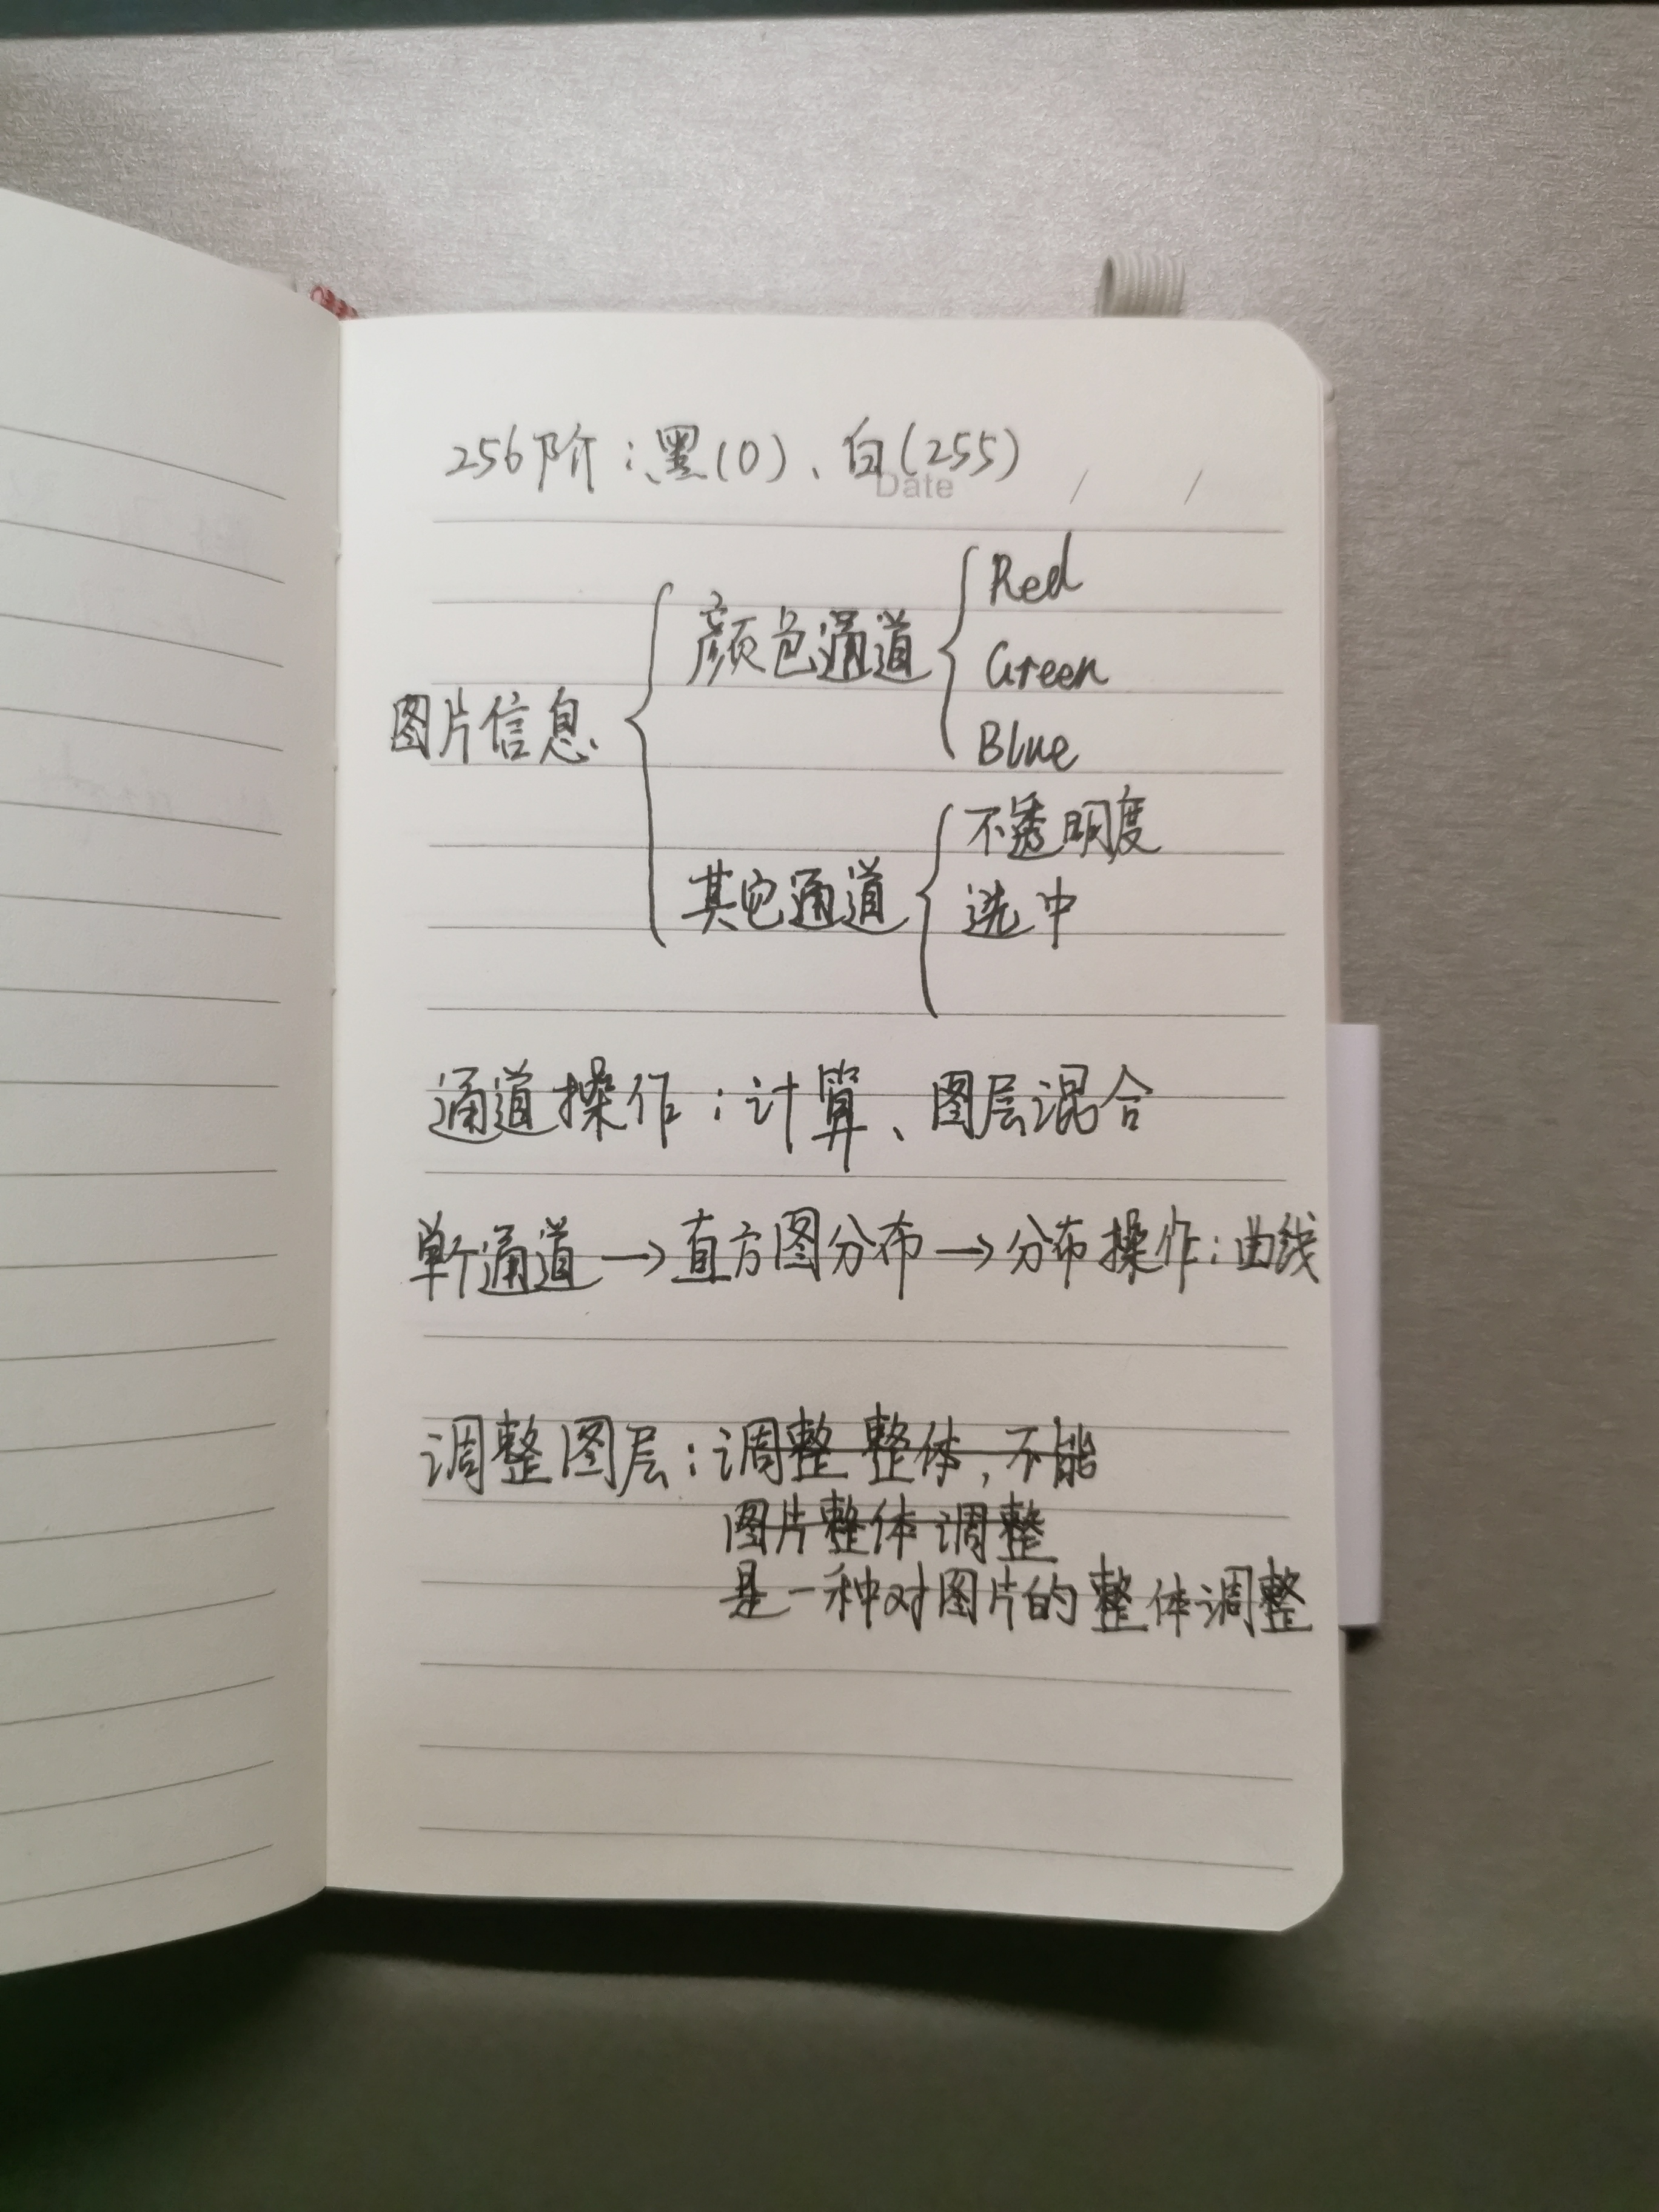 256阶：黑(0)、白(255)
Date / /
图片信息
颜色通道
Red
Green
Blue
其它通道
不透明度
选中
通道操作：计算、图层混合
单个通道→直方图分布→分布操作：曲线
调整图层：调整整体，不能
图片整体调整
是一种对图片的整体调整